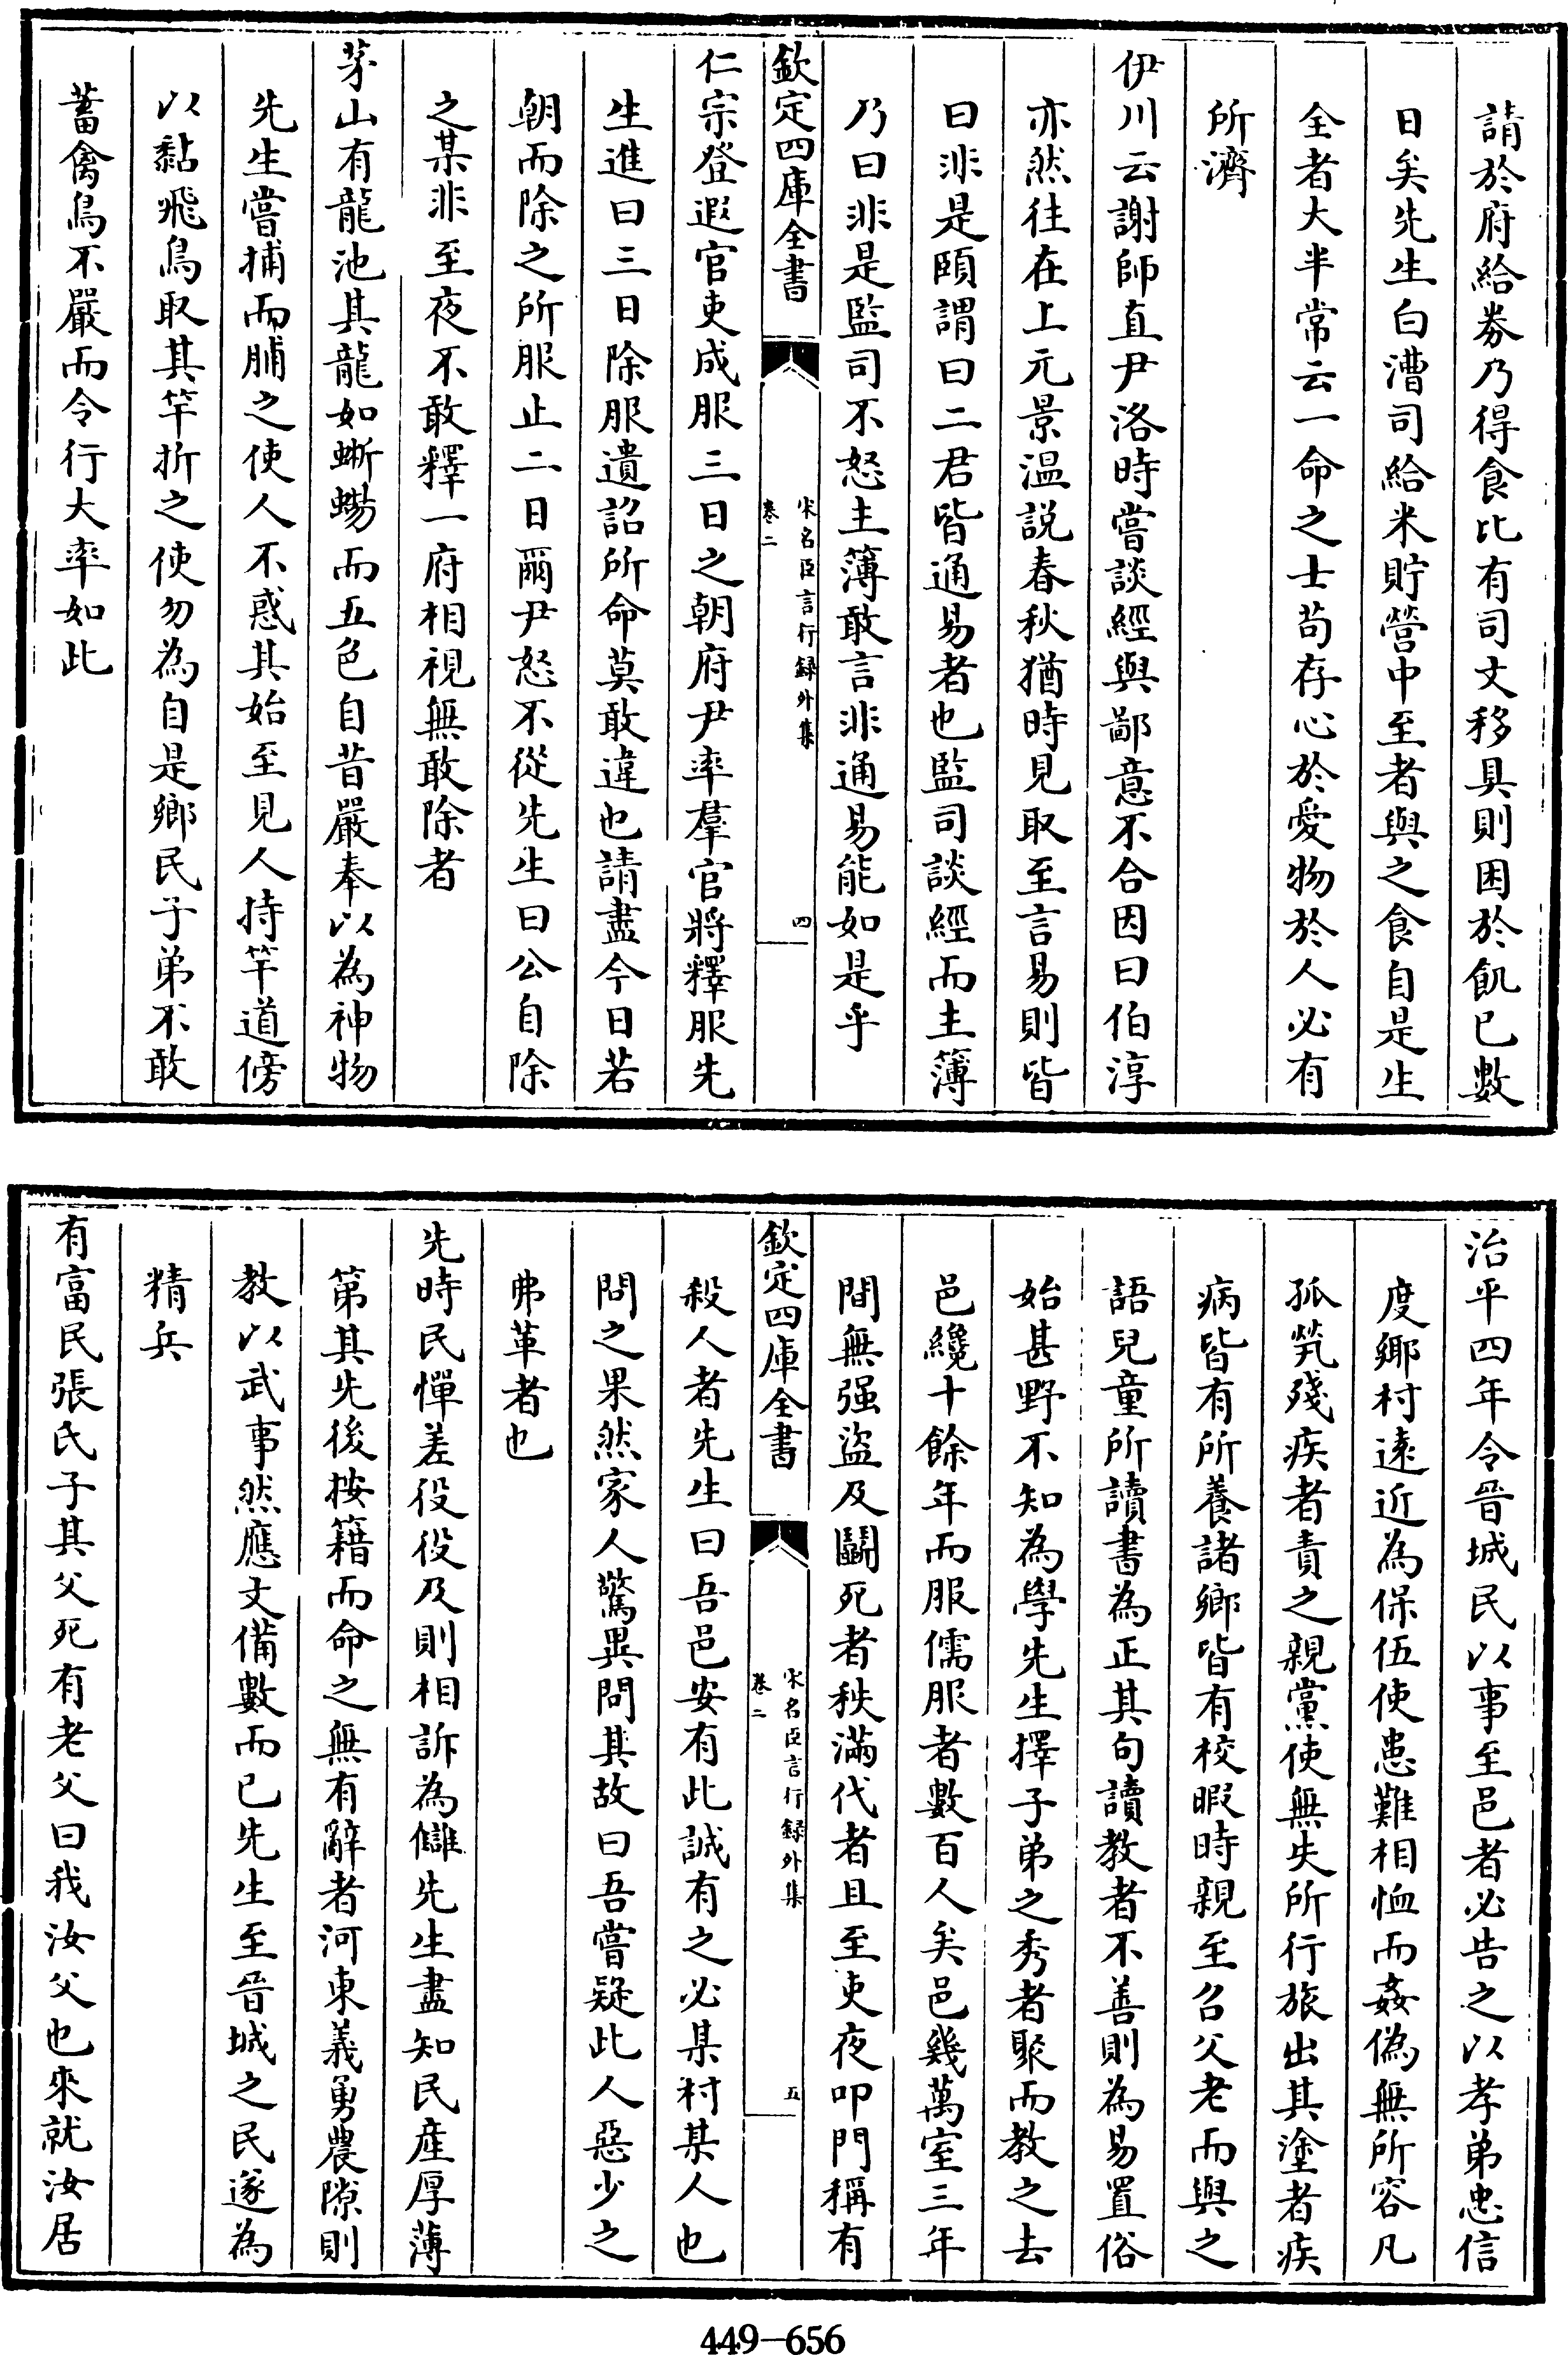 請於府給券乃得食比有司文移具則困於飢已數
日矣先生白漕司給米貯營中至者與之食自是生
全者大半常云一命之士苟存心於愛物於人必有
所濟
伊川云謝師直尹洛時嘗談經與鄙意不合因曰伯淳
亦然往在上元景温説春秋猶時見取至言易則皆
曰非是頤謂曰二君皆通易者也監司談經而主簿
乃曰非是監司不怒主簿敢言非通易能如是乎
欽定四庫全書
宋名臣言行録外集
卷二
四
仁宗登遐官吏成服三日之朝府尹率羣官將釋服先
生進曰三日除服遺詔所命莫敢違也請盡今日若
朝而除之所服止二日爾尹怒不從先生曰公自除
之某非至夜不敢釋一府相視無敢除者
茅山有龍池其龍如蜥蜴而五色自昔嚴奉以為神物
先生嘗捕而脯之使人不惑其始至見人持竿道傍
以黏飛鳥取其竿折之使勿為自是鄉民子弟不敢
蓄禽鳥不嚴而令行大率如此
治平四年令晉城民以事至邑者必告之以孝弟忠信
度鄉村遠近為保伍使患難相恤而姦偽無所容凡
孤煢殘疾者責之親黨使無失所行旅出其塗者疾
病皆有所養諸鄉皆有校暇時親至召父老而與之
語兒童所讀書為正其句讀教者不善則為易置俗
始甚野不知為學先生擇子弟之秀者聚而教之去
邑纔十餘年而服儒服者數百人矣邑幾萬室三年
間無强盜及鬭死者秩滿代者且至吏夜叩門稱有
欽定四庫全書
宋名臣言行録外集
卷二
五
殺人者先生曰吾邑安有此誠有之必某村某人也
問之果然家人驚異問其故曰吾嘗疑此人惡少之
弗革者也
先時民憚差役役及則相訴為讎先生盡知民產厚薄
第其先後按籍而命之無有辭者河東義勇農隙則
教以武事然應文備數而已先生至晉城之民遂為
精兵
有富民張氏子其父死有老父曰我汝父也來就汝居
449-656